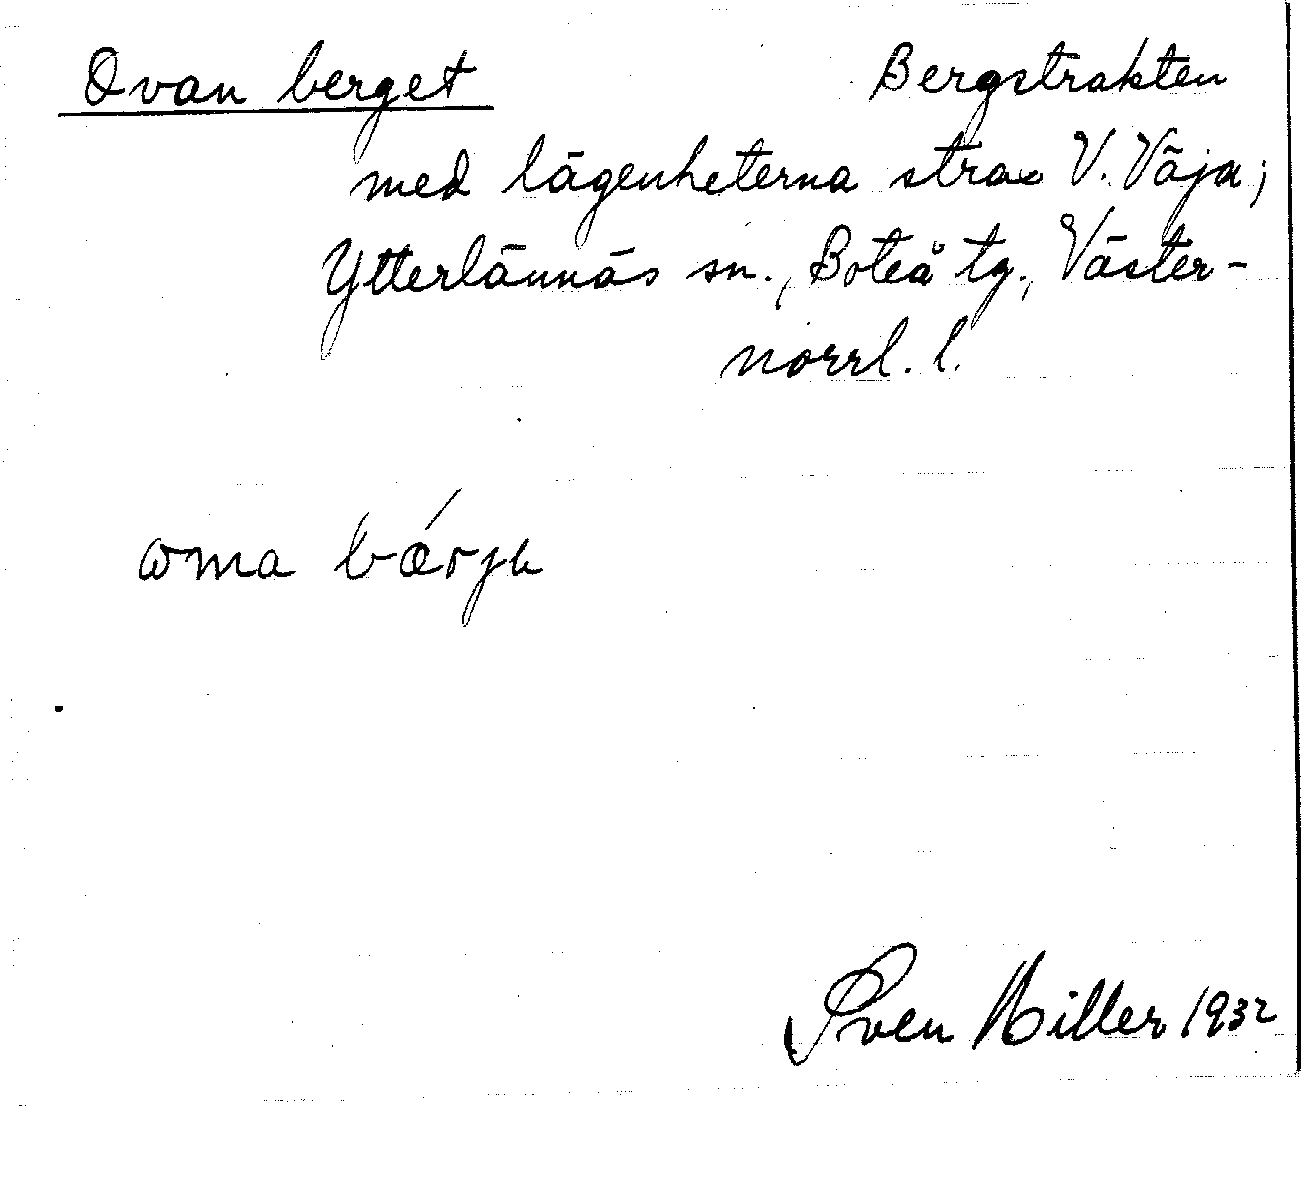 Ovan berget Bergstrakten
med lägenheterna strax V. Väja;
Ytterlännäs sn., Boteå tg., Väster-
norrl. l.
oma bǽrjɩ
Sven Hiller 1932